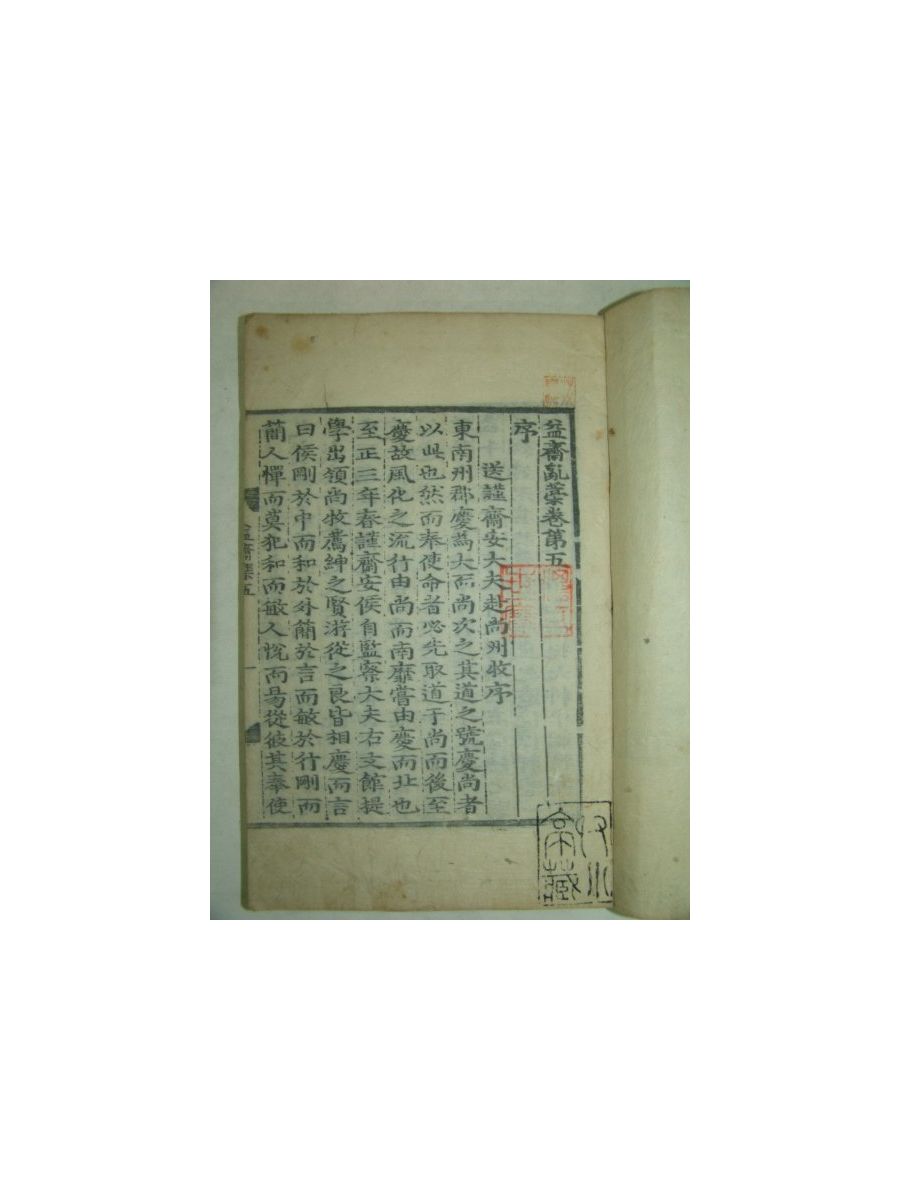 益齋亂藁卷第五
序
送謹齋安大夫赴尙州牧序
東南州郡慶為大而尚次之其道之號慶尚者
以此也然而奉使命者必先取道于尚而後至
慶故風化之流行由尚而南靡嘗由慶而北也
至正三年春謹齋安侯自監察大夫右文館提
學出領尚牧薦紳之賢游從之良皆相慶而言
曰侯剛於中而和於外簡於言而敏於行剛而
簡人憚而莫犯和而敏人悅而易從彼其奉使
益齋集五